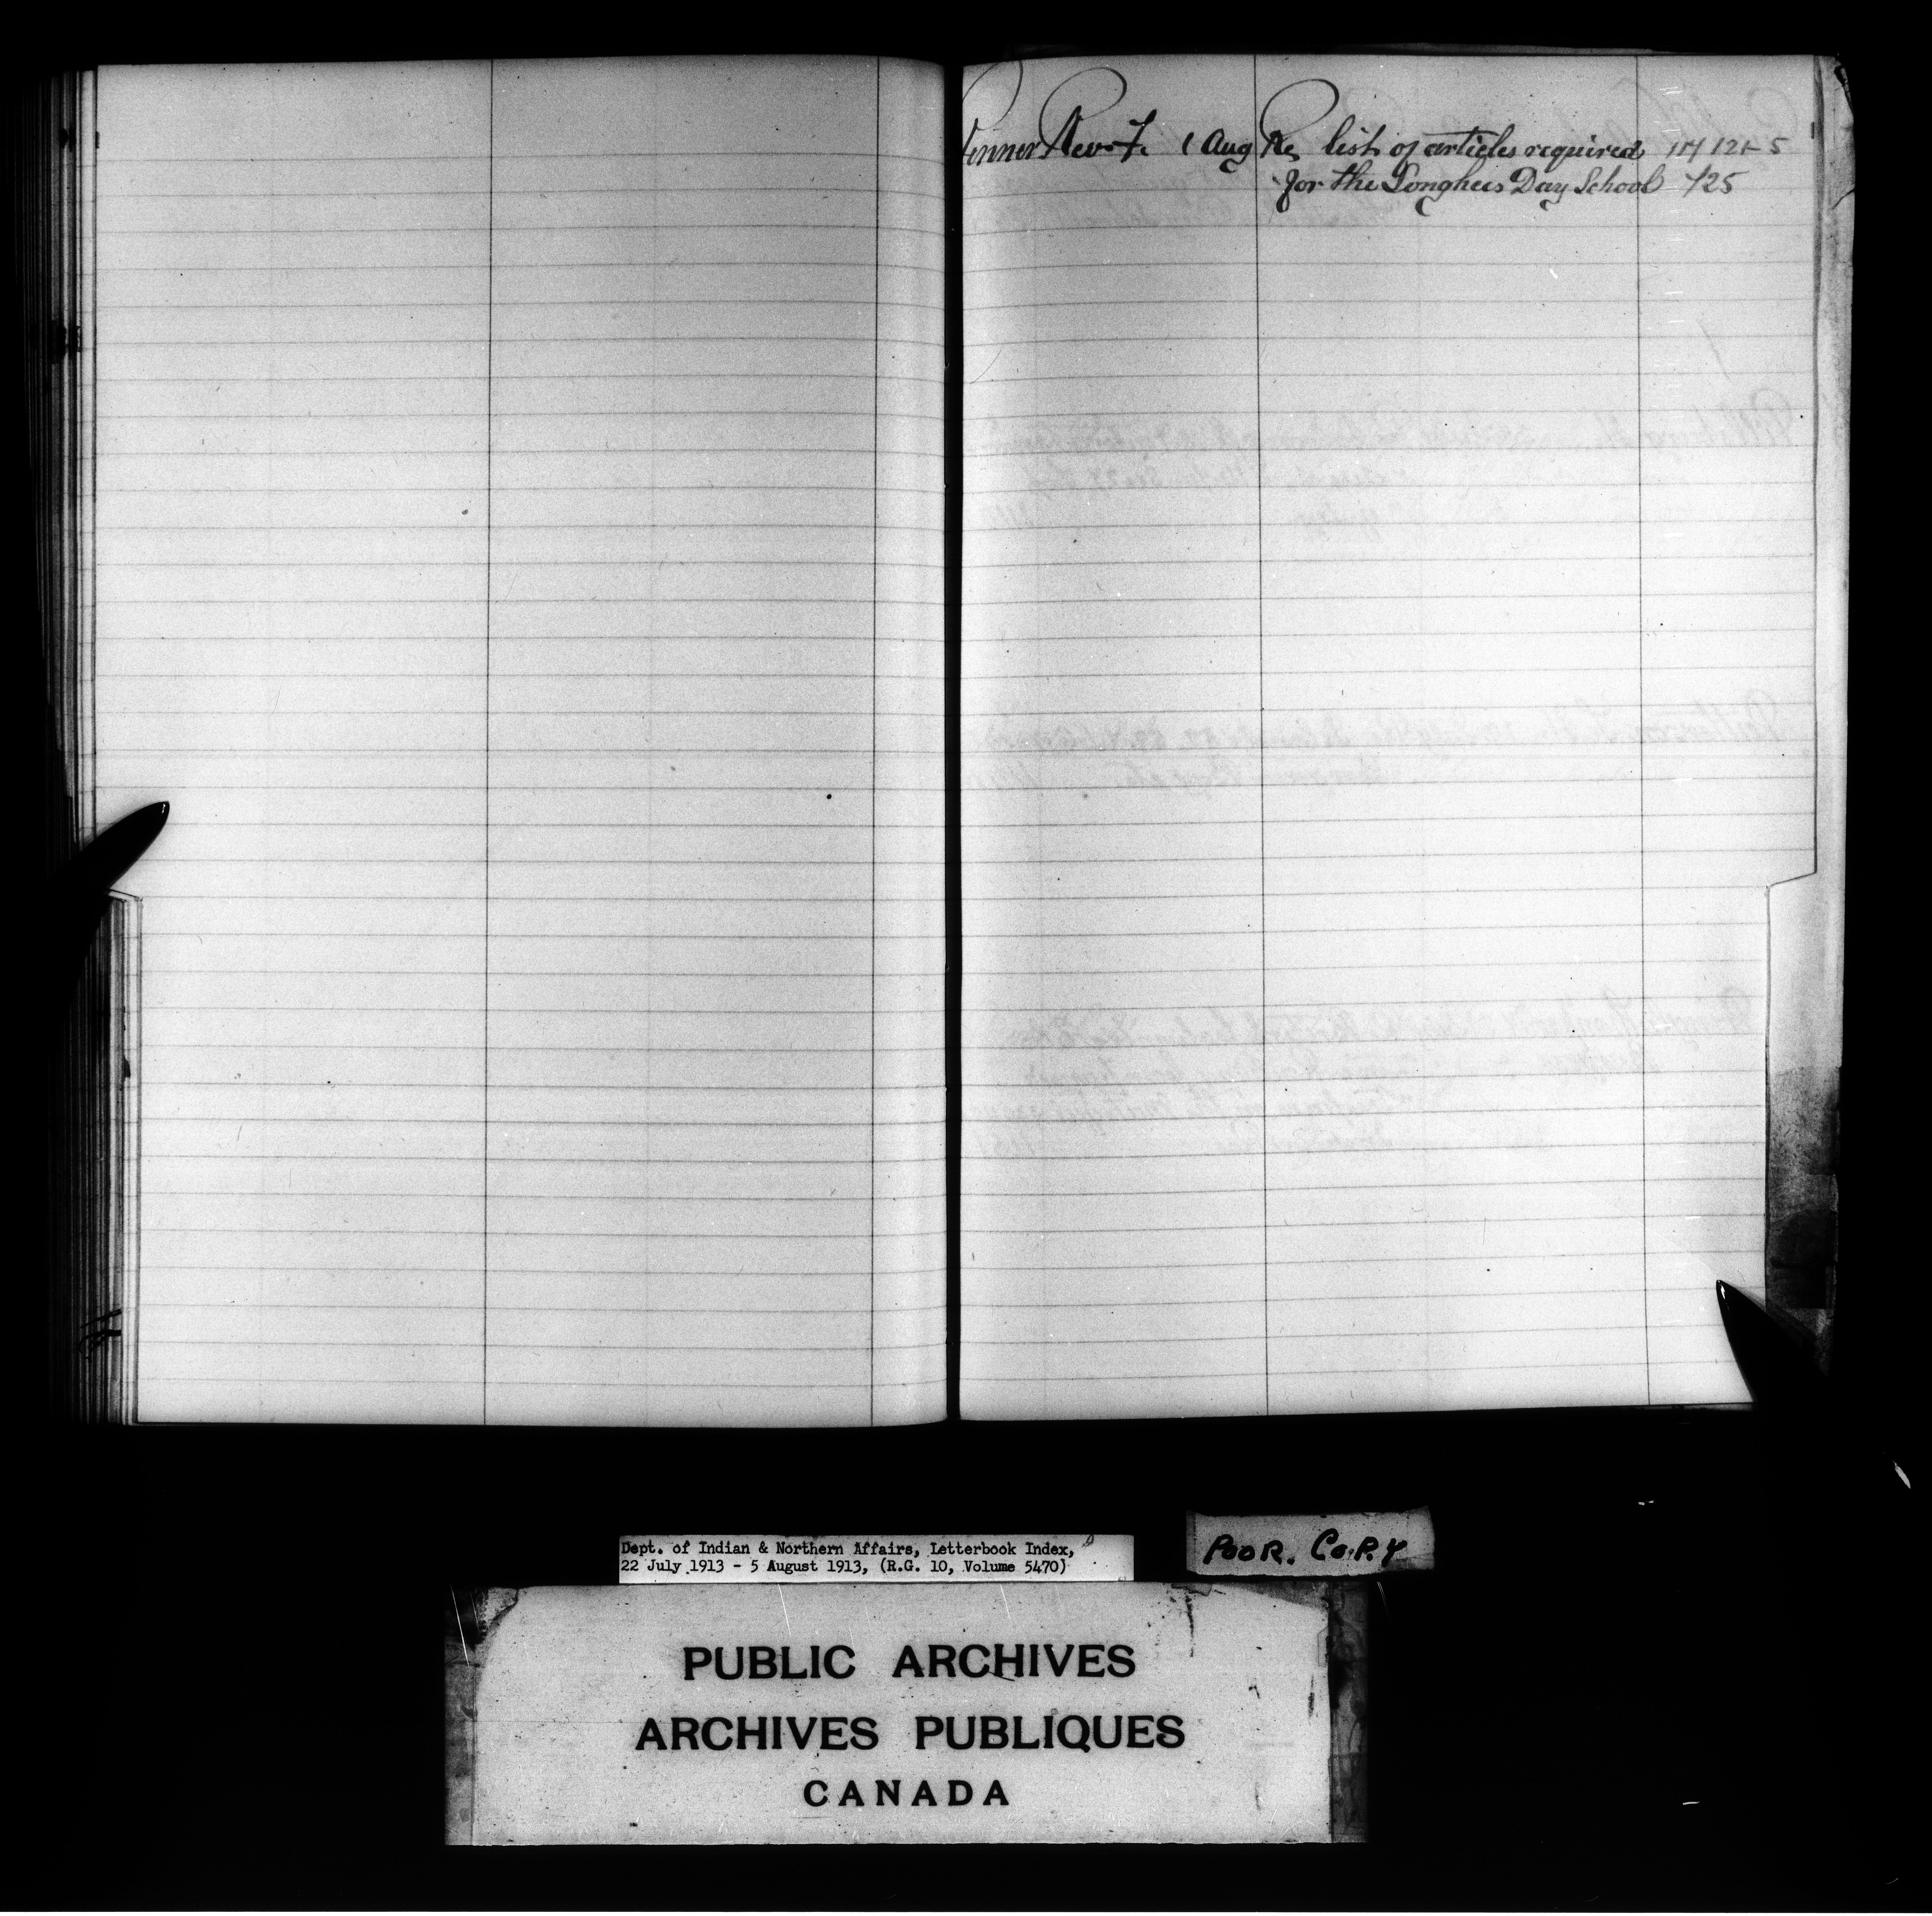 Renner Rev. F. 1 Aug Re list of articles required
for the Songhees Day School 425
Dept. of Indian & Northern Affairs, Letterbook Index,
22 July 1913 - 5 August 1913, (R.G. 10, Volume 5470)
POOR. COPY
PUBLIC ARCHIVES
ARCHIVES PUBLIQUES
CANADA